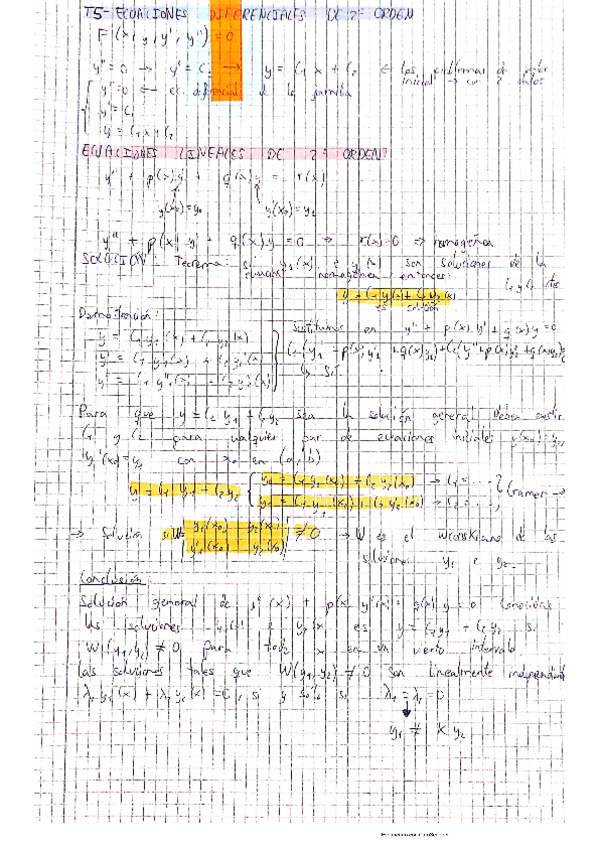 T5- ECUACIONES DIFERENCIALES DE 2º ORDEN
F(x, y, y', y'') = 0
y'' = 0 → y' = C → y = C1 x + C2 ← Los problemas de valor
inicial → con 2 datos
y'' = 0 ← ec. diferencial de la familia
y' = C1
y = C1x + C2
ECUACIONES LINEALES DE 2º ORDEN
y'' + p(x)y' + q(x)y = r(x)
y(x0) = y0 y'(x0) = y2
y'' + p(x)y' + q(x)y = 0 → r(x) = 0 → homogénea
SOLUCIÓN: Teorema: si y1(x) e y2(x) son soluciones de la
homogénea, entonces:
y = C1 y1(x) + C2 y2(x)
es solución
Demostración:
y = C1 y1(x) + C2 y2(x)
Sustituimos en y'' + p(x)y' + q(x)y = 0
y' = C1 y1'(x) + C2 y2'(x)
y'' = C1 y1''(x) + C2 y2''(x)
Para que y = C1 y1 + C2 y2 sea la solución general deben existir
C1 y C2 para cualquier par de ecuaciones iniciales y(x0) = y0,
y'(x0) = y1 con x0 en (a, b)
y = C1 y1 + C2 y2
y0 = C1 y1(x0) + C2 y2(x0) → C1 = ...
y1 = C1 y1'(x0) + C2 y2'(x0) → C2 = ...
Cramer →
→ Solución si W = | y1(x0) y2(x0) | ≠ 0 → W es el wronskiano de las
| y1'(x0) y2'(x0) |
soluciones y1 e y2
Conclusión:
Solución general de y''(x) + p(x)y'(x) + q(x)y = 0 conocidas
las soluciones y1(x) e y2(x) es y = C1y1 + C2y2 si
W(y1, y2) ≠ 0 para todo x en un cierto intervalo.
Las soluciones tales que W(y1, y2) ≠ 0 son linealmente independientes
λ1 y1(x) + λ2 y2(x) = 0, si y solo si λ1 = λ2 = 0
y1 ≠ K y2